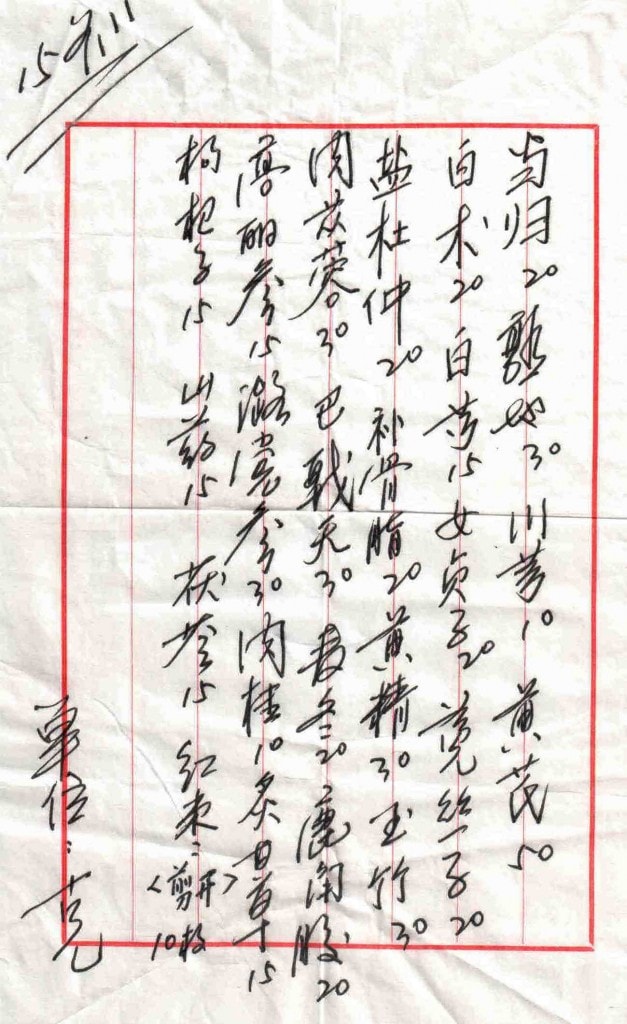 15剂
当归20 熟地30 川芎10 黄芪50
白术20 白芍15 女贞子20 菟丝子20
盐杜仲20 补骨脂20 黄精30 玉竹30
肉苁蓉30 巴戟天30 麦冬20 鹿角胶20
高丽参15 潞党参30 肉桂10 炙甘草15
枸杞子15 山药15 茯苓15 红枣：<剪开>10枚
单位：克